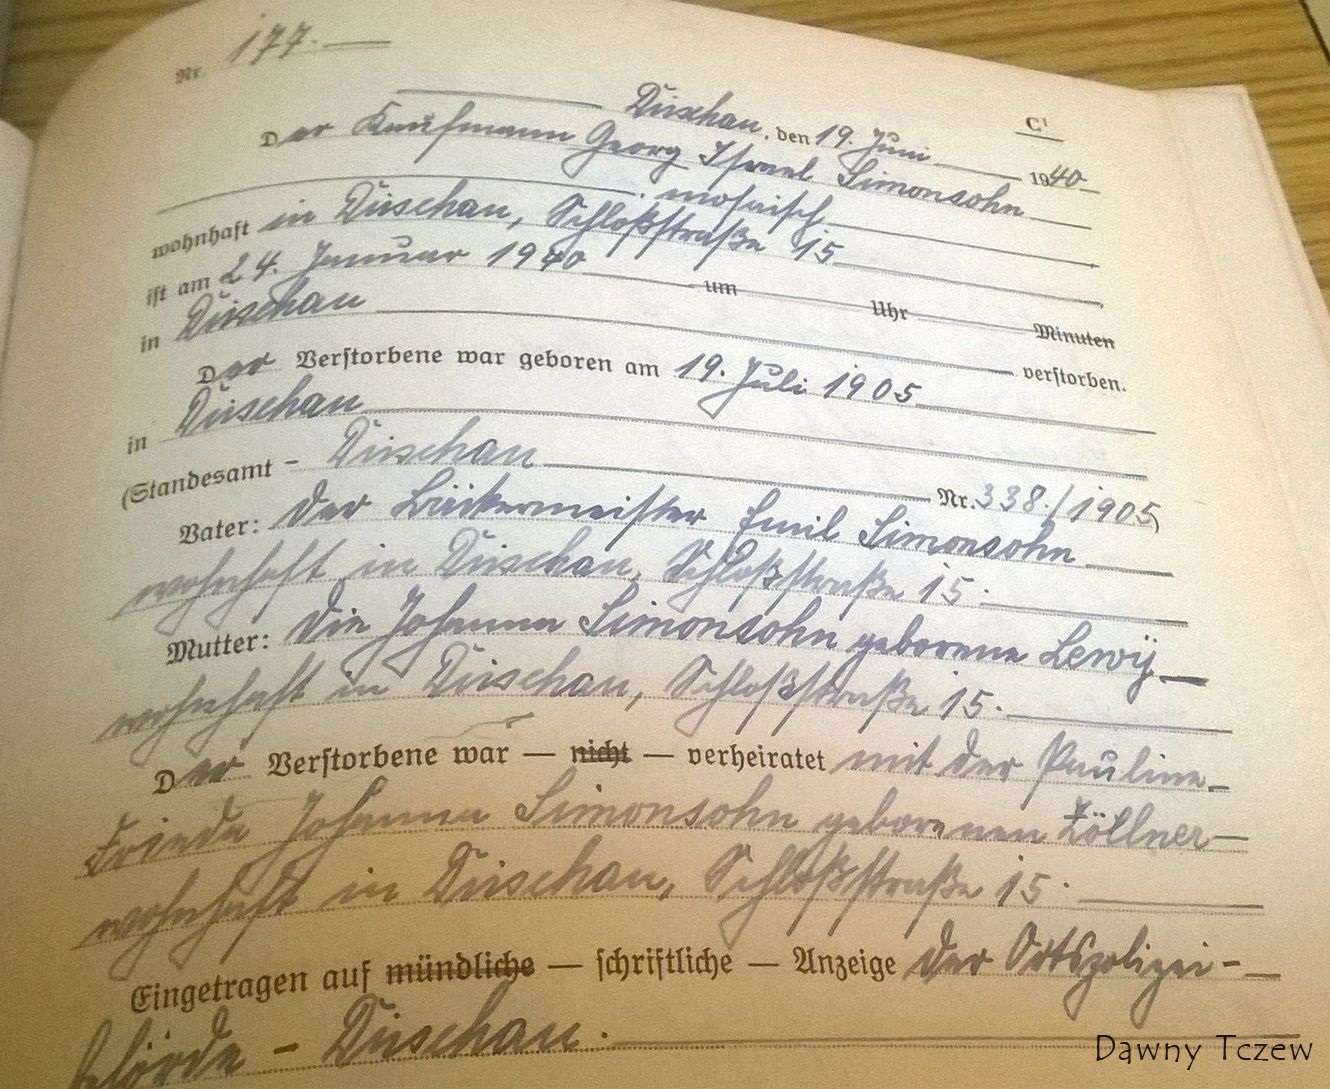 Nr. 177.
C¹
Dirschau, den 19. Juni 1940
Der Kaufmann Georg Israel Simonsohn
mosaisch
wohnhaft in Dirschau, Schloßstraße 15
ist am 24. Januar 1940 um Uhr Minuten
in Dirschau verstorben.
Der Verstorbene war geboren am 19. Juli 1905
in Dirschau
(Standesamt - Dirschau Nr. 338./1905)
Vater: der Bäckermeister Emil Simonsohn
wohnhaft in Dirschau, Schloßstraße 15.
Mutter: die Johanna Simonsohn geborene Lewÿ
wohnhaft in Dirschau, Schloßstraße 15.
Der Verstorbene war — nicht — verheiratet mit der Pauline
Frieda Johanna Simonsohn geborenen Zöllner
wohnhaft in Dirschau, Schloßstraße 15.
Eingetragen auf mündliche — schriftliche — Anzeige der Ortspolizei-
behörde - Dirschau.
Dawny Tczew